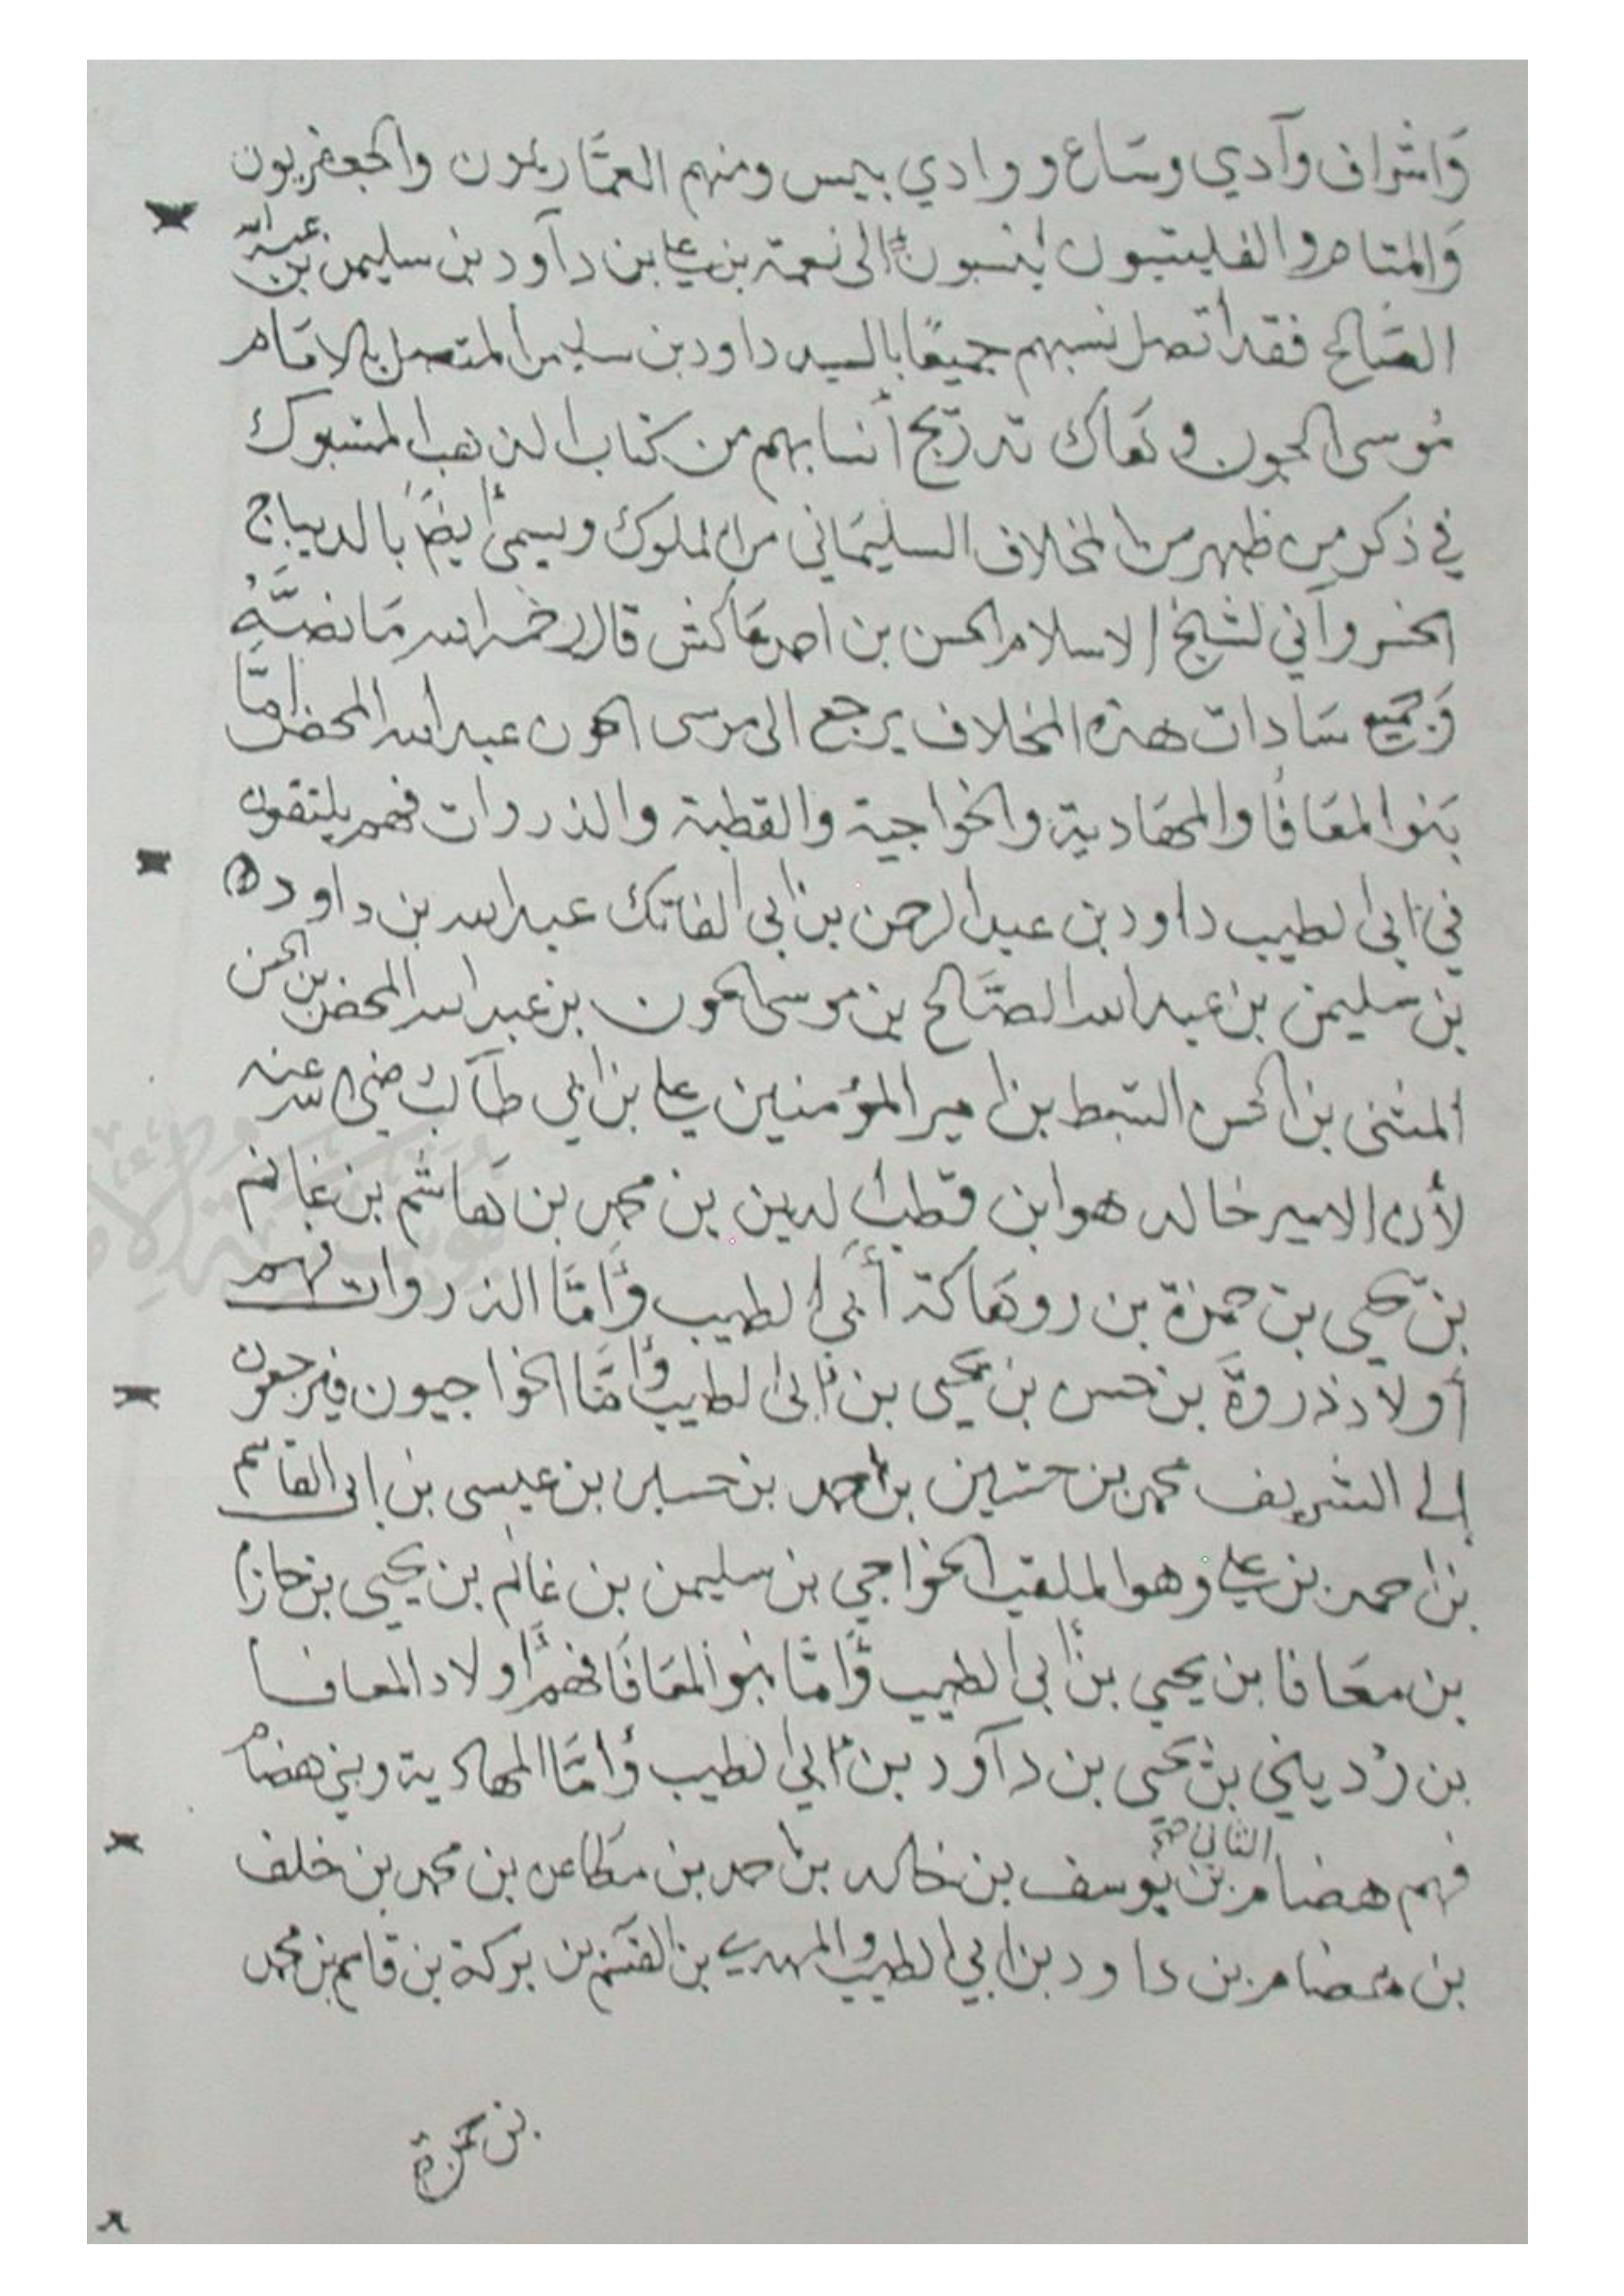 وَاشراف وآدي وسَاع ووادي بيس ومنهم العمَّاريون والجعفريون
وَالمتاهر والفليتيون ينسبون الى نعمة بن علي بن دآود بن سليمن بن عبدالله
الصَّالح فقد اتصل نسبهم جميعًا بالسيد داود بن سليمن المتصل بالامَام
مُوسى الجون وهَاك تدريج أنسابهم من كتاب الذهب المسبوك
في ذكر من ظهر من المخلاف السليمَاني من الملوك ويسمى أيضًا بالديباج
الخسرواني لشيخ الاسلام الحسن بن احمد عَاكش قال رحمه الله مَا نصَّهُ
وَجميع سَادات هذه المخلاف يرجع الى موسى الجون عبدالله المحض امَّا
بَنوا المعَافَا والمهَادية والخواجية والقطبة والذروات فهم يلتقون
في ابى الطيب داود بن عبدالرحمن بن ابي الفاتك عبدالله بن داود
بن سليمن بن عبدالله الصَّالح بن موسى الجون بن عبدالله المحض بن الحسن
المثنى بن الحسن السبط بن امير المؤمنين علي بن ابي طآلب رضي الله عنه
لأن الامير خالد هو ابن قطب الدين بن محمد بن هَاشم بن غانم
بن يحيى بن حمزة بن روهَاكة أبي الطيب وأمَّا الذروات فهم
أولاد ذروَة بن حسن بن يحيى بن ابى الطيب وأمَّا الخواجيون فيرجعون
إلى الشريف محمد بن حسين بن احمد بن حسين بن عيسى بن ابى القاسم
بن احمد بن علي وهو الملقب الخواجي بن سليمن بن غانم بن يحيى بن حازم
بن معَافا بن يحيى بن أبى الطيب وأمَّا بنو المعَافَا فهم اولاد المعافا
بن رُديني بن يحَيى بن دآود بن ابي الطيب وأمَّا المهادية وبني هضام
فهم هضام الثاني بن يوسف بن خالد بن احمد بن مطَاعن بن محمد بن خلف
بن هضام بن داود بن ابي الطيب والمهدي بن القسم بن بركة بن قاسم بن محمد
بن حمزة
٨